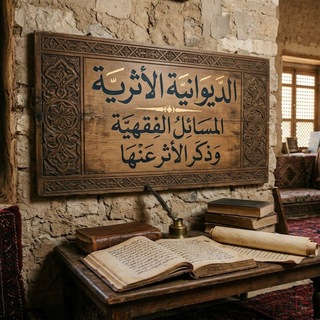 الدِّيوَانِيَّة الأَثَرِيَّة
المَسَائِلُ الفِقْهِيَّة
وَذِكَرُ الأَثَرِ عَنْهَا